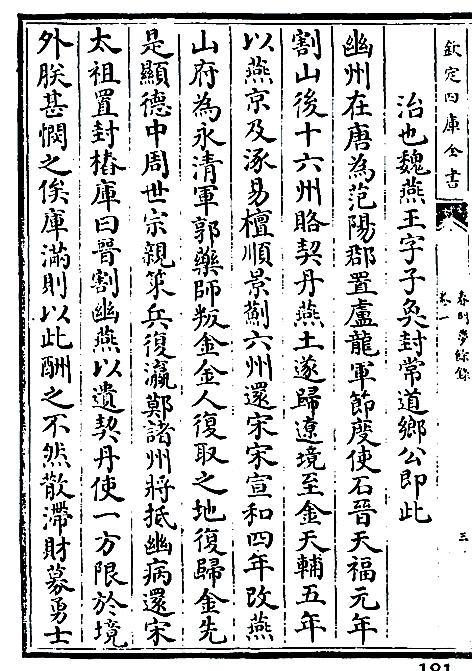 欽定四庫全書
春明夢餘錄
卷一
三
治也魏燕王宇子奐封常道鄉公即此
幽州在唐為范陽郡置盧龍軍節度使石晉天福元年
割山後十六州賂契丹燕土遂歸遼境至金天輔五年
以燕京及涿易檀順景薊六州還宋宋宣和四年改燕
山府為永清軍郭藥師叛金金人復取之地復歸金先
是顯德中周世宗親策兵復瀛鄚諸州將抵幽病還宋
太祖置封樁庫曰晉割幽燕以遺契丹使一方限於境
外朕甚憫之俟庫滿則以此酬之不然散滯財募勇士
181